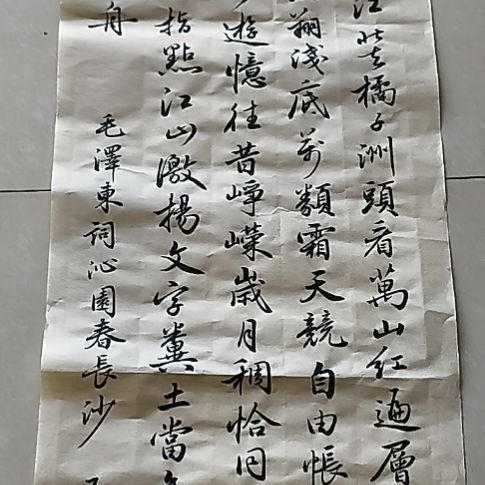 江北去橘子洲頭看萬山紅遍層
翔淺底萬類霜天競自由悵
遊憶往昔崢嶸歲月稠恰同
指點江山激揚文字糞土當
舟
毛澤東詞沁園春長沙